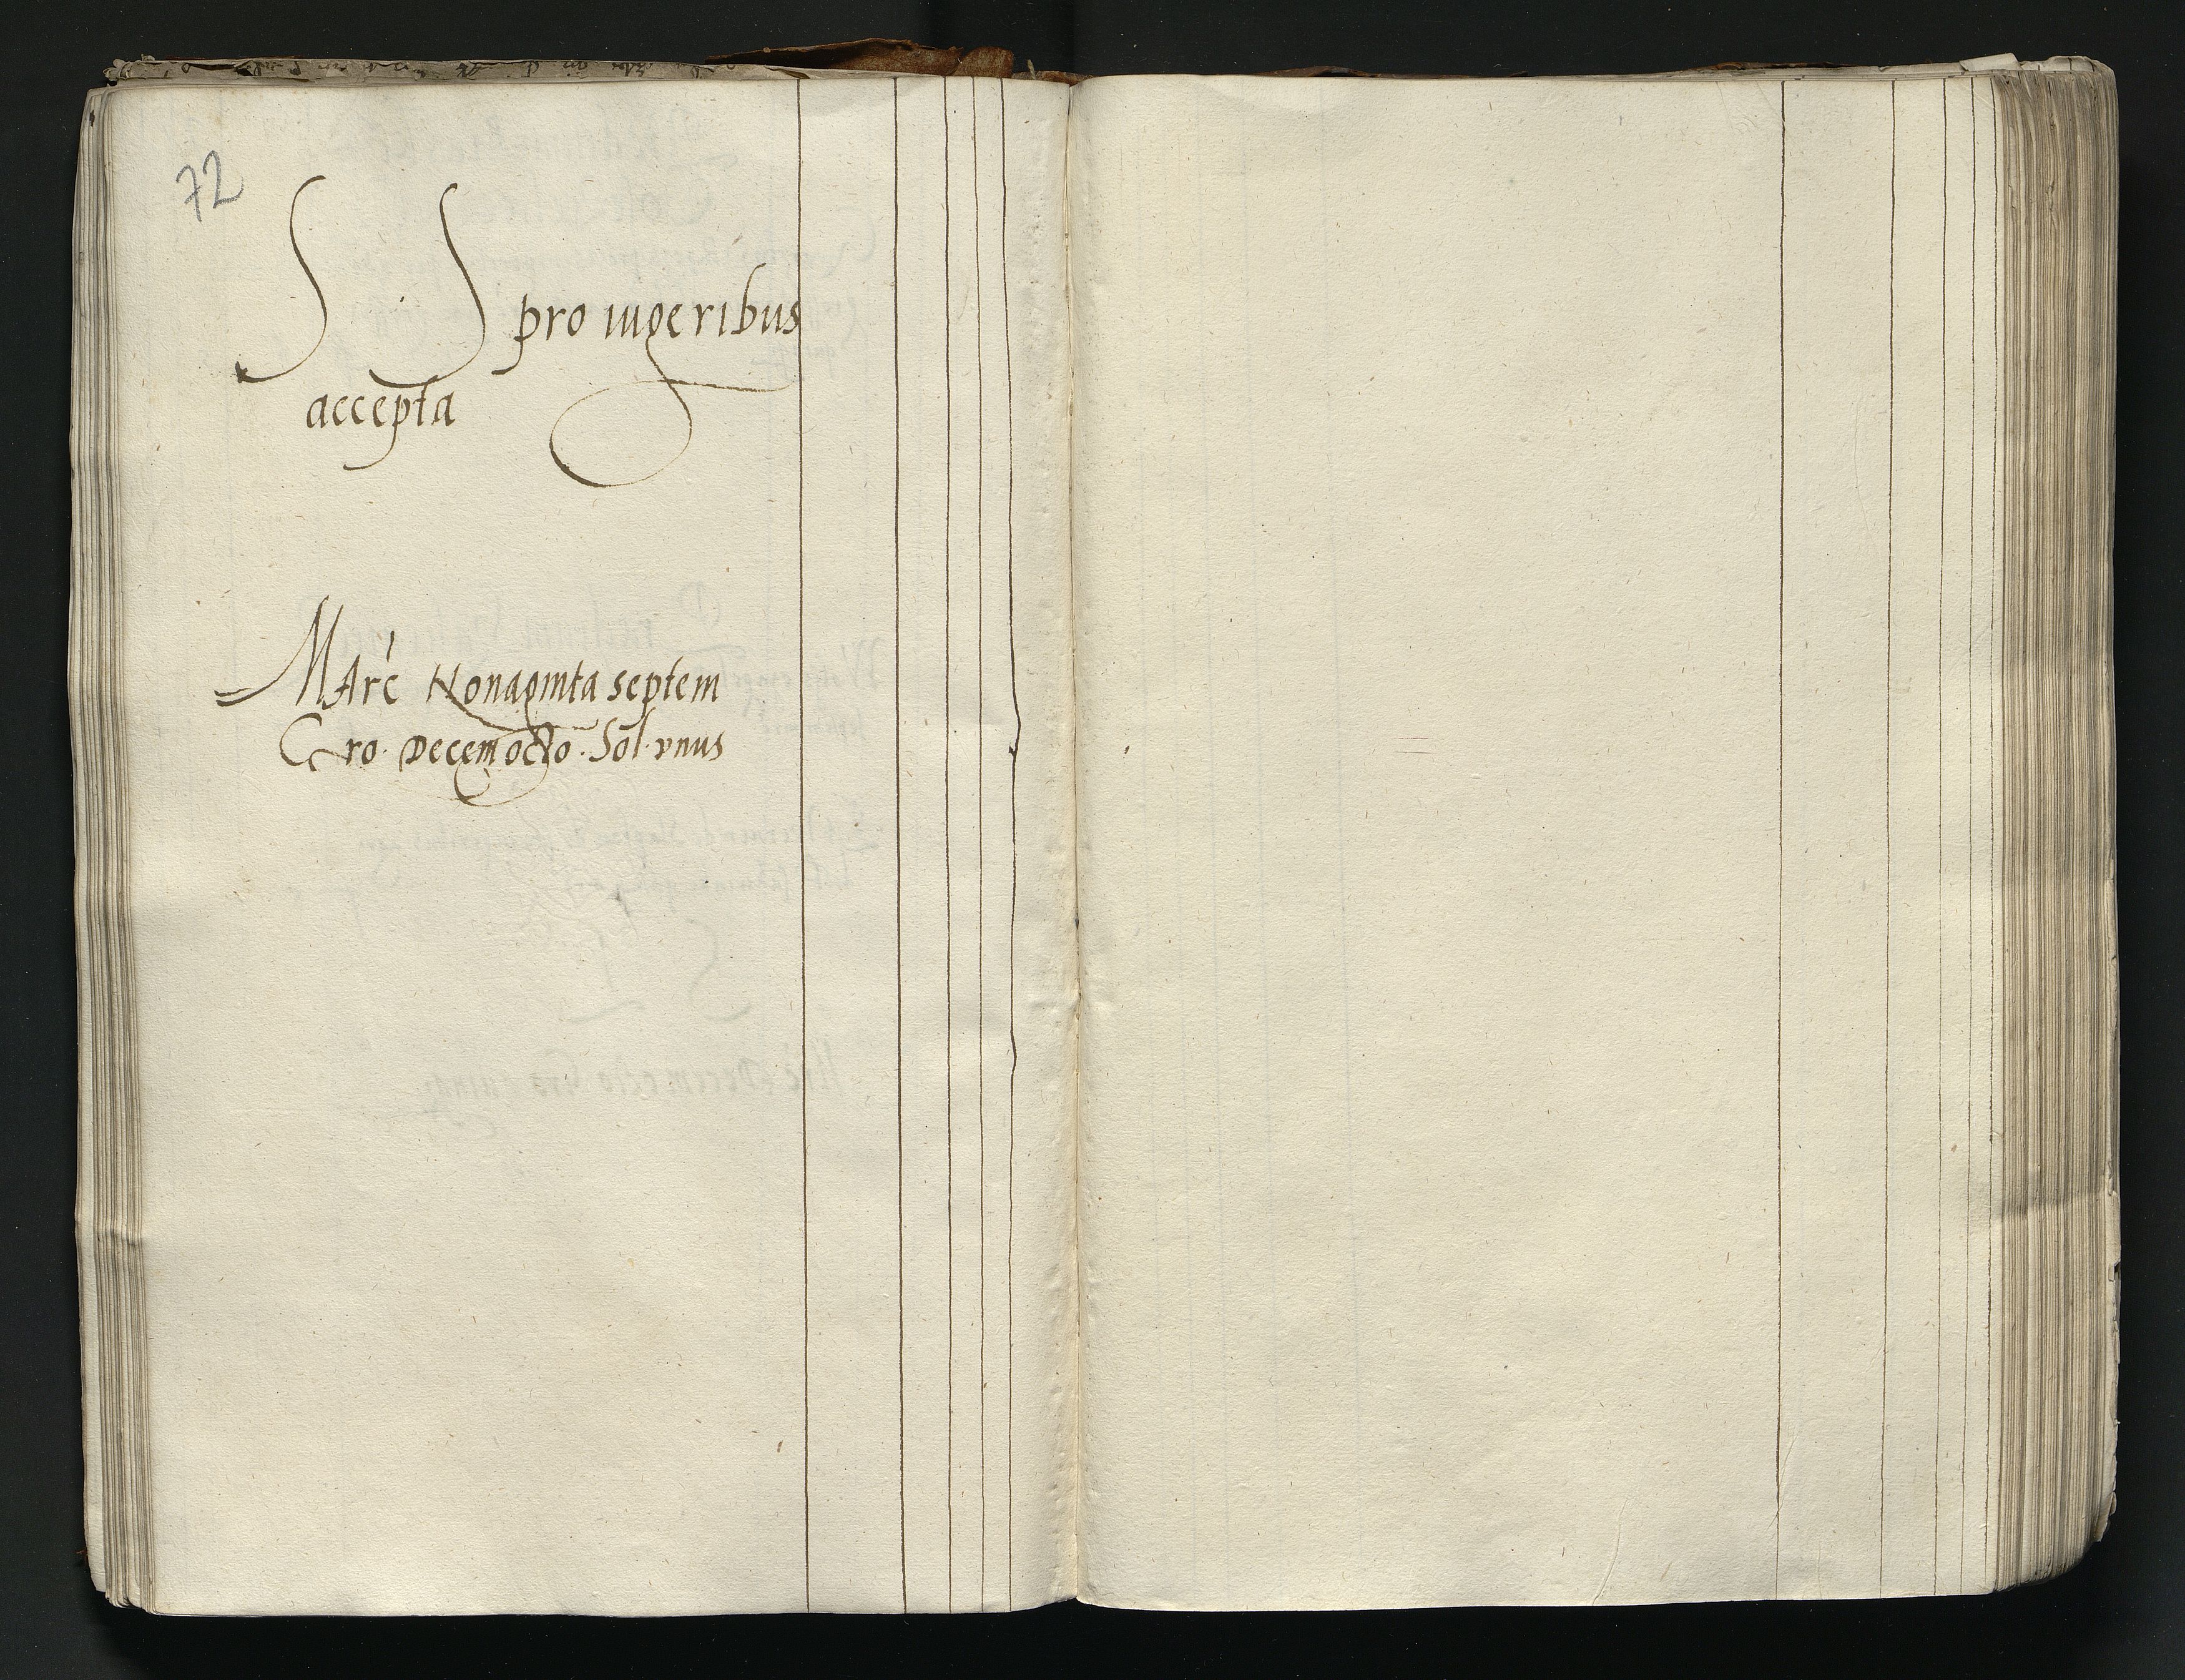 72
S S pro iugeribus
accepta
Marc Nonaginta septem
Gro. Decem octo. Sol. vnus